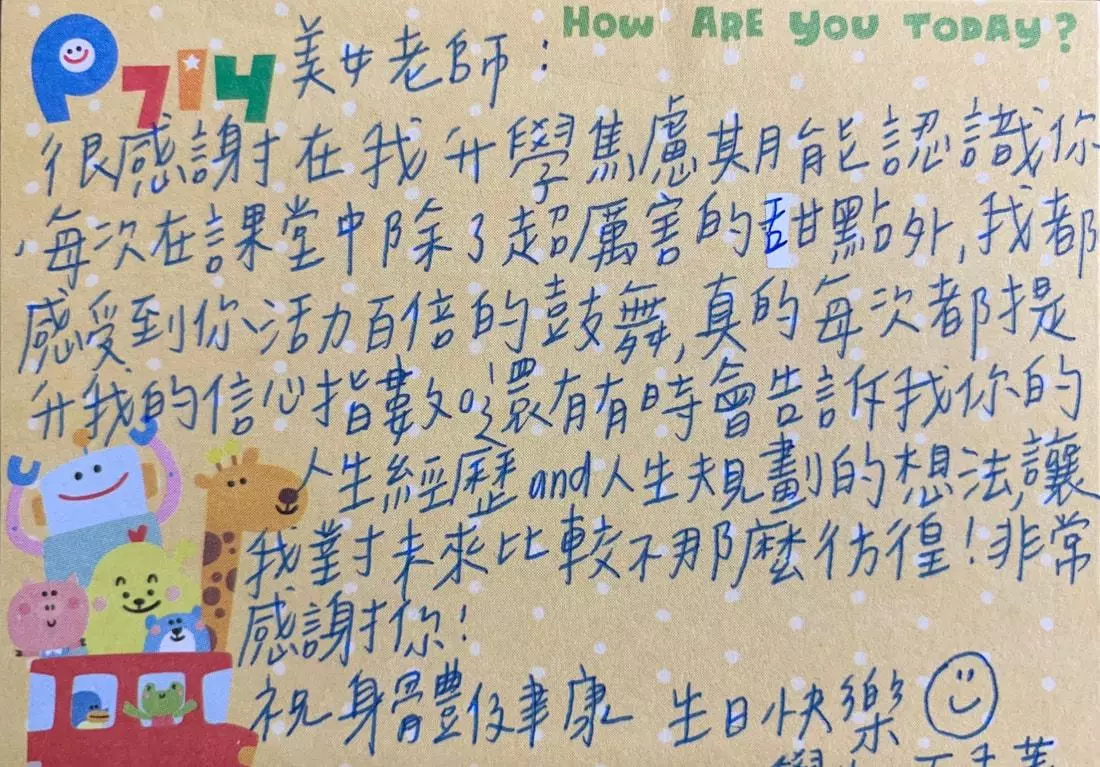 PLAY
HOW ARE YOU TODAY?
美女老師：
很感謝在我升學焦慮期能認識你
,每次在課堂中除了超厲害的甜點外,我都
感受到你活力百倍的鼓舞,真的每次都提
升我的信心指數。還有有時會告訴我你的
人生經歷and人生規劃的想法,讓
我對未來比較不那麼彷徨!非常
感謝你!
祝身體健康 生日快樂